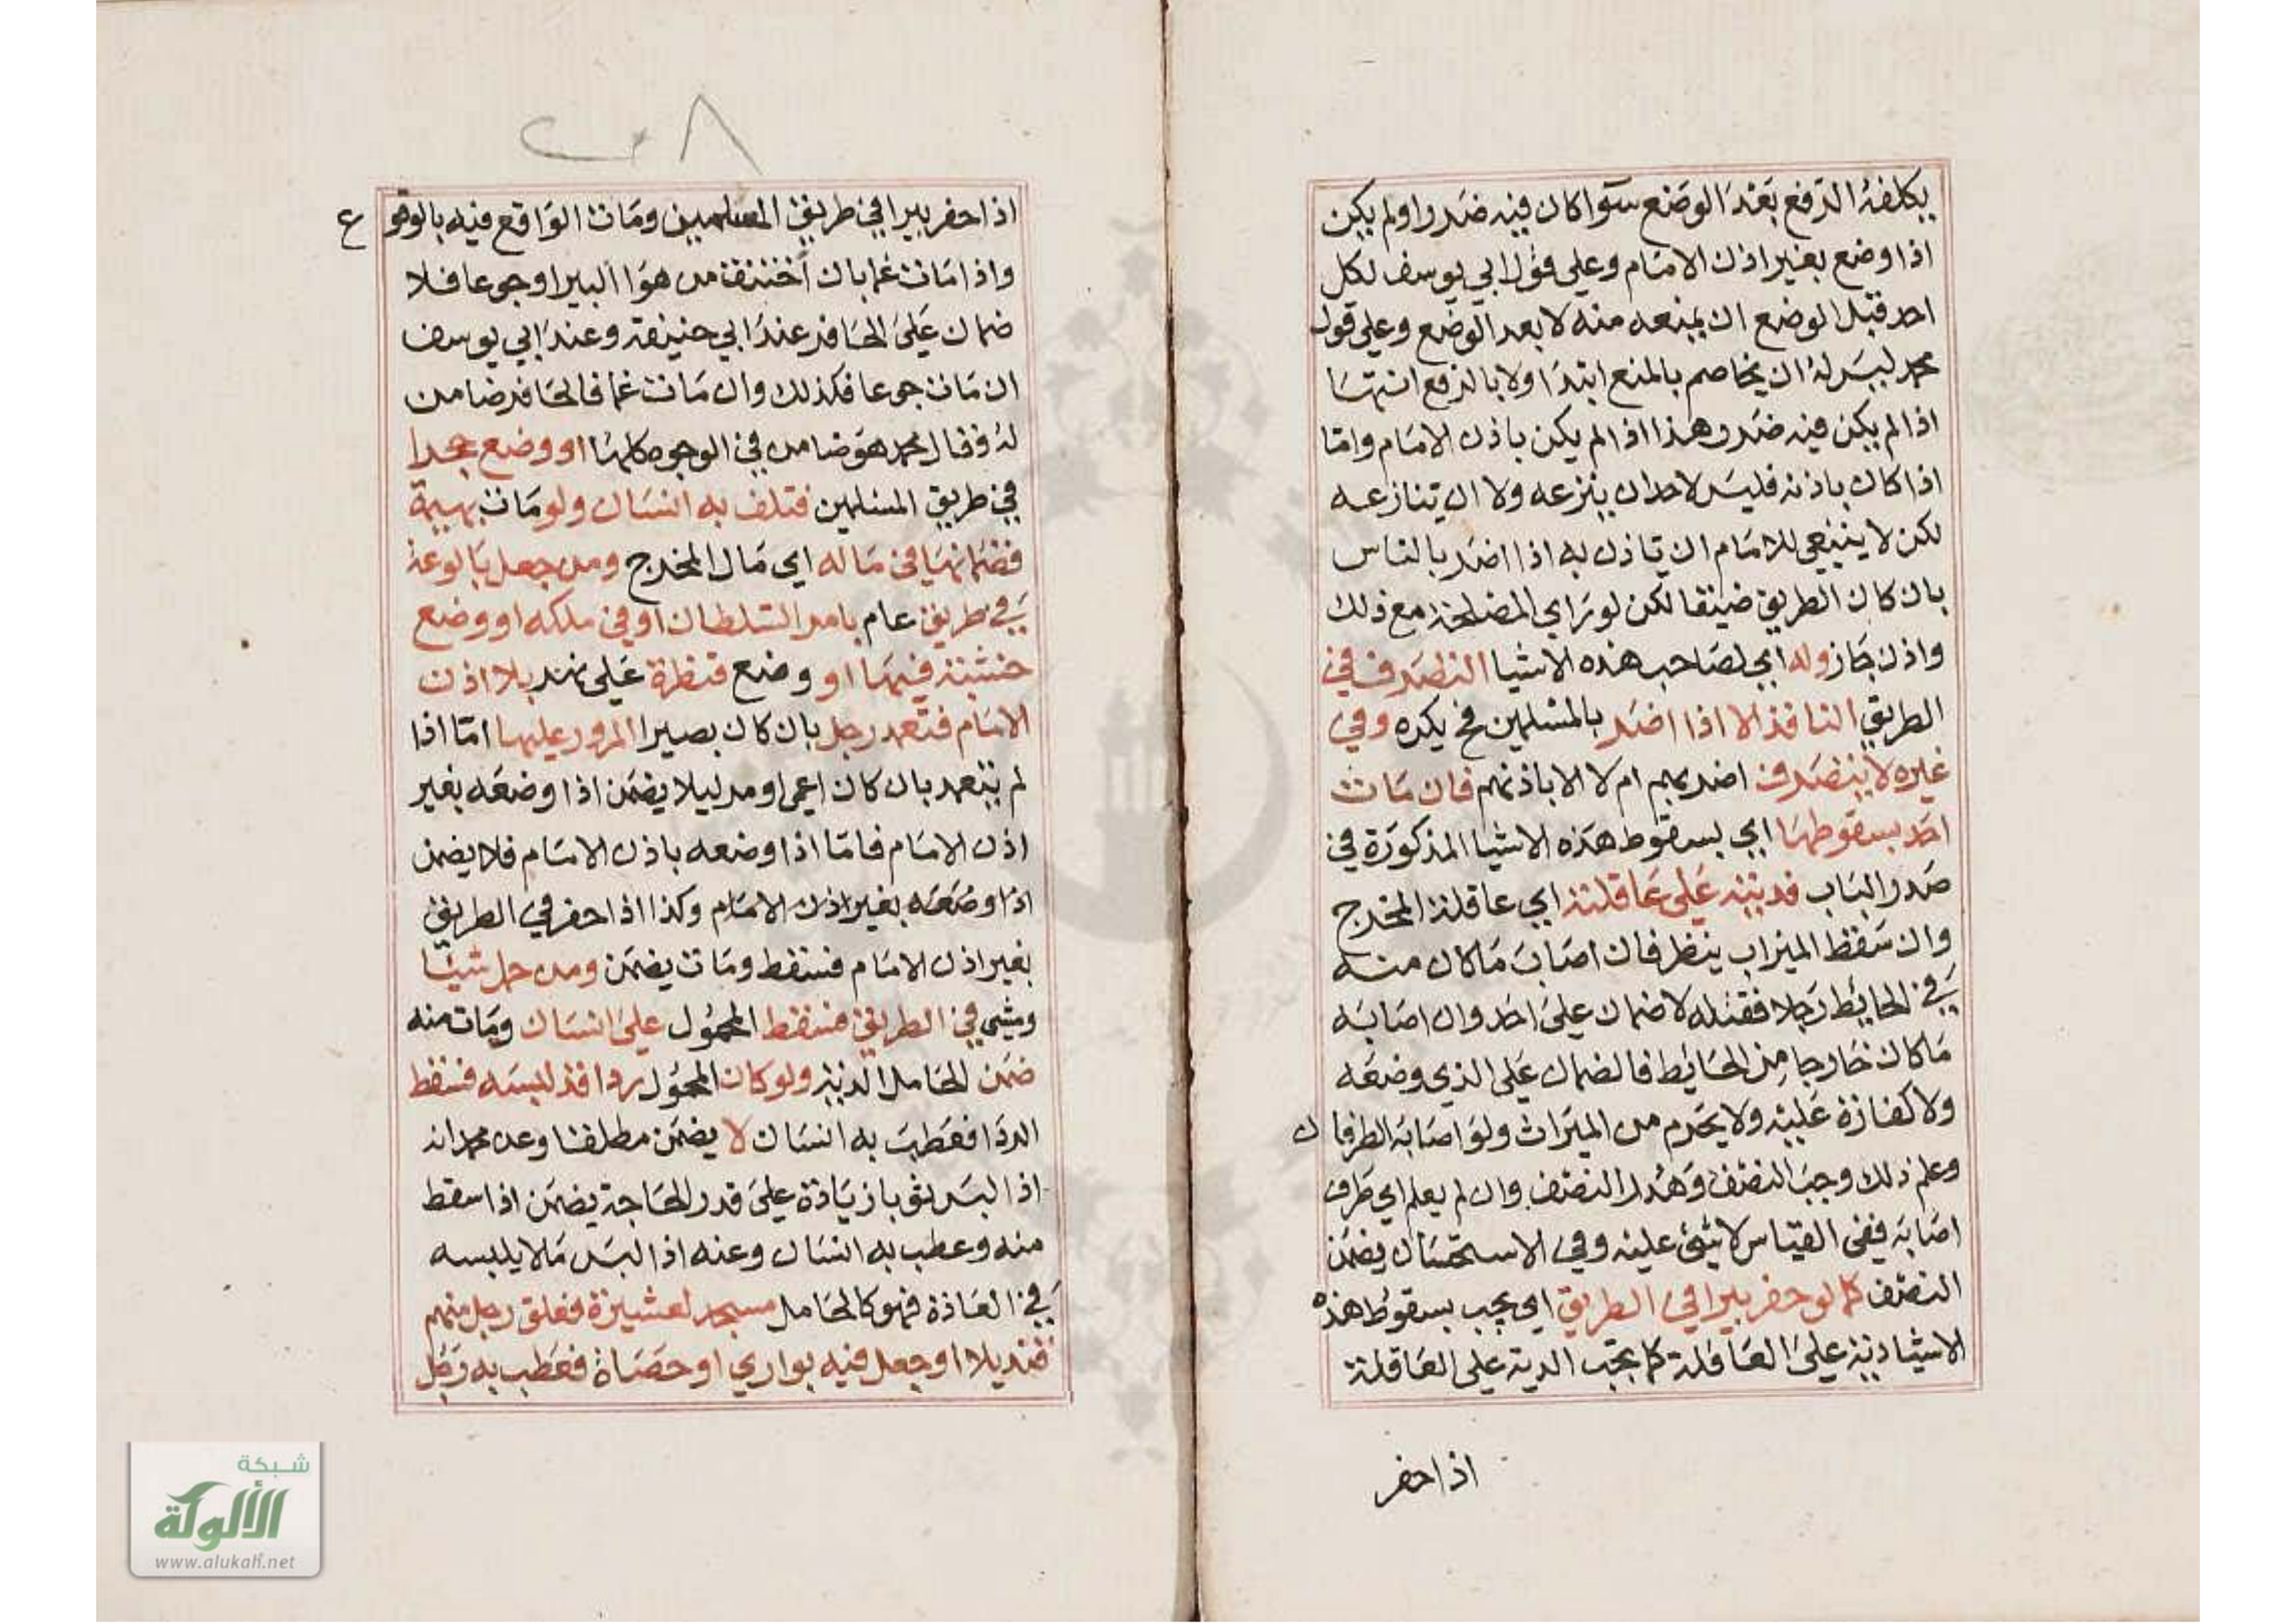 يكلفه الدفع بعد الوضع سوا كان فيه ضرر او لم يكن
اذا وضع بغير اذن الامام وعلي قول ابي يوسف لكل
احد قبل الوضع ان يمنعه منه لا بعد الوضع وعلي قول
محمد ليس له ان يخاصم بالمنع ابتدا ولا بالدفع انتها
اذا لم يكن فيه ضرر وهذا اذا لم يكن باذن الامام واما
اذا كان باذنه فليس لاحد ان ينزعه ولا ان تنازعه
لكن لا ينبغي للامام ان تاذن به اذا اضر بالناس
بان كان الطريق ضيقا لكن لو راي المصلحة مع ذلك
واذن جاز وله اي لصاحب هذه الاشيا التصرف في
الطريق النافذ الا اذا اضر بالمسلمين فح يكره وفي
غيره لا يتصرف اضر بهم ام لا الا باذنهم فان مات
احد بسقوطها اي بسقوط هذه الاشيا المذكورة في
صدر الباب فديته علي عاقلته اي عاقلة المخرج
وان سقط الميزاب ينظر فان اصاب ما كان منه
في الحايط رجلا فقتله لا ضمان علي احد وان اصابه
ما كان خارجا من الحايط فالضمان علي الذي وضعه
ولا كفارة عليه ولا يحرم من الميراث ولو اصابه الطرفان
وعلم ذلك وجب النصف وهدر النصف وان لم يعلم اي طرف
اصابه ففي القياس لا شئ عليه وفي الاستحسان يضمن
النصف كما لو حفر بيرا في الطريق اي يجب بسقوط هذه
الاشيا دية علي العاقلة كما تجب الدية علي العاقلة
اذا حفر
٢٠٨
اذا حفر بيرا في طريق المسلمين ومات الواقع فيه بالوقوع
واذا مات غما بان اختنق من هوا البير او جوعا فلا
ضمان علي الحافر عند ابي حنيفة وعند ابي يوسف
ان مات جوعا فكذلك وان مات غما فالحافر ضامن
له وقال محمد هو ضامن في الوجوه كلها او وضع حجرا
في طريق المسلمين فتلف به انسان ولو مات بهيمة
فضمانها في ماله اي مال المخرج ومن جعل بالوعة
في طريق عام بامر السلطان او في ملكه او وضع
خشبة فيها او وضع قنطرة علي نهر بلا اذن
الامام فتعمد رجل بان كان بصيرا المرور عليها اما اذا
لم يتعمد بان كان اعمي او مر ليلا يضمن اذا وضعه بغير
اذن الامام فاما اذا وضعه باذن الامام فلا يضمن
اذا وضعه بغير اذن الامام وكذا اذا حفر في الطريق
بغير اذن الامام فسقط ومات يضمن ومن حمل شيئا
ومشي في الطريق فسقط المحمول علي انسان ومات منه
ضمن الحامل الدية ولو كان المحمول ردا قد لبسه فسقط
الردا فعطب به انسان لا يضمن مطلقا وعن محمد انه
اذا لبس ثوبا زيادة علي قدر الحاجة يضمن اذا سقط
منه وعطب به انسان وعنه اذا لبس ما لا يلبسه
في العادة فهو كالحامل مسجد لعشيرة فعلق رجل منهم
قنديلا او جعل فيه بواري او حصاة فعطب به رجل
شبكة
الألوكة
www.alukah.net